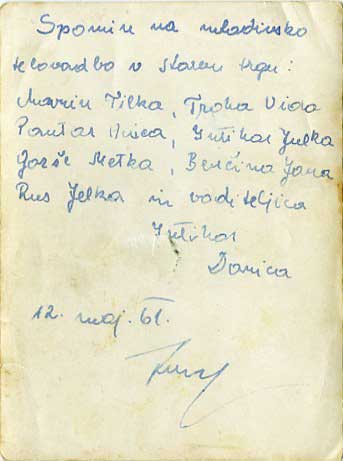 Spomin na mladinsko
telovadbo v starem trgu:
Mavrin Tilka, Troha Vida
Pantar Anica, Intihar Julka
Gorše Metka, Benčina Jana
Rus Jelka in vaditeljica
Intihar
Danica
12. maj. 61.